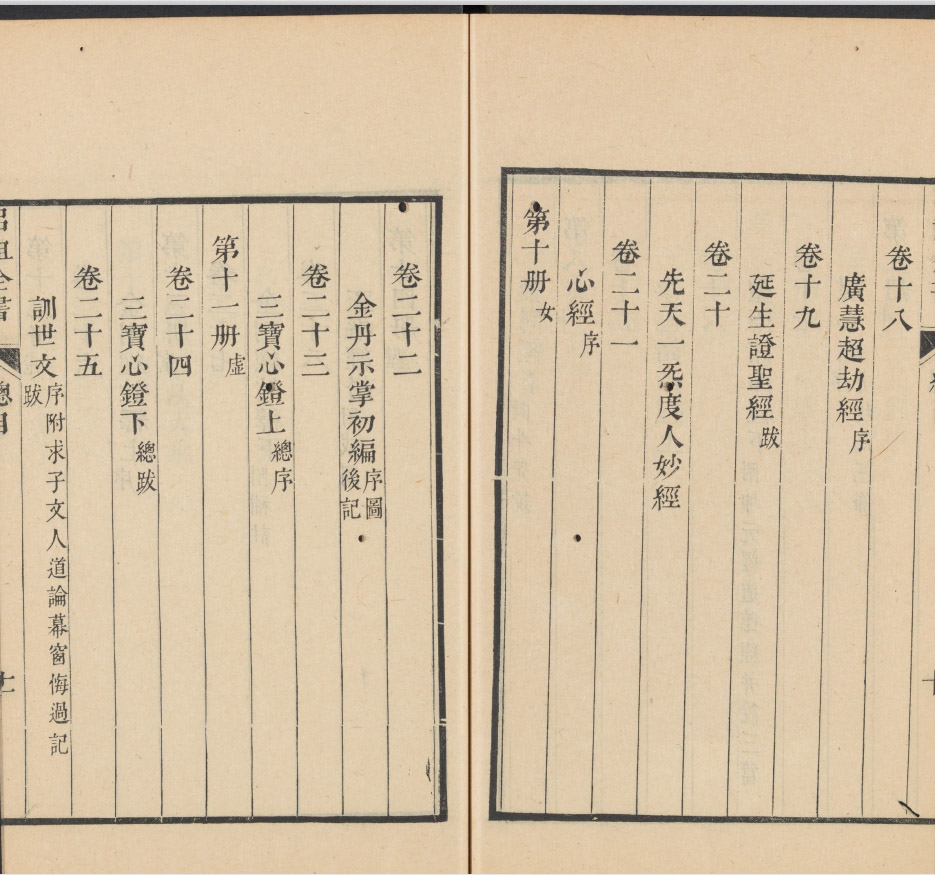 卷十八
廣慧超劫經序
卷十九
延生證聖經跋
卷二十
先天一炁度人妙經
卷二十一
心經序
第十册女
卷二十二
金丹示掌初編序圖後記
卷二十三
三寶心鐙上總序
第十一册虛
卷二十四
三寶心鐙下總跋
卷二十五
訓世文序附求子文人道論幕窗悔過記跋
呂祖全書 總目